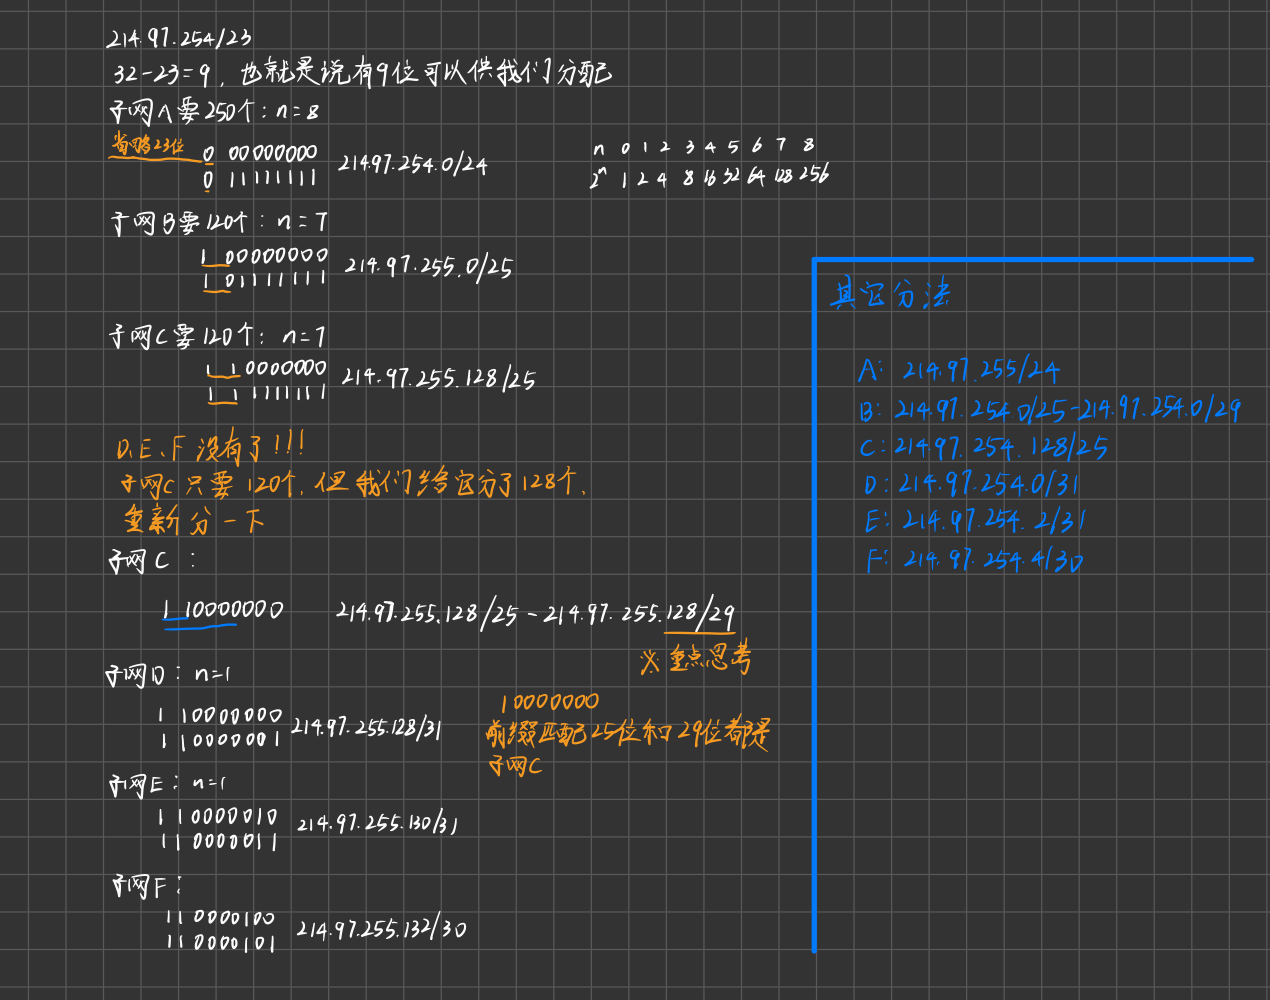 214.97.254/23
32-23=9，也就是说有9位可以供我们分配
子网A要250个：n=8
省略23位
0 00000000
0 11111111
214.97.254.0/24
n 0 1 2 3 4 5 6 7 8
2ⁿ 1 2 4 8 16 32 64 128 256
子网B要120个：n=7
1 00000000
1 01111111
214.97.255.0/25
子网C要120个：n=7
1 10000000
1 11111111
214.97.255.128/25
D、E、F没有了!!!
子网C只要120个，但我们给它分了128个，
重新分一下
子网C：
1 10000000 214.97.255.128/25-214.97.255.128/29
※重点思考
子网D：n=1
1 10000000
1 10000001
214.97.255.128/31
10000000
前缀匹配25位和29位都是
子网C
子网E：n=1
1 10000010
1 10000011
214.97.255.130/31
子网F：
1 10000100
1 10000101
214.97.255.132/30
其它分法
A: 214.97.255/24
B: 214.97.254.0/25-214.97.254.0/29
C: 214.97.254.128/25
D: 214.97.254.0/31
E: 214.97.254.2/31
F: 214.97.254.4/30